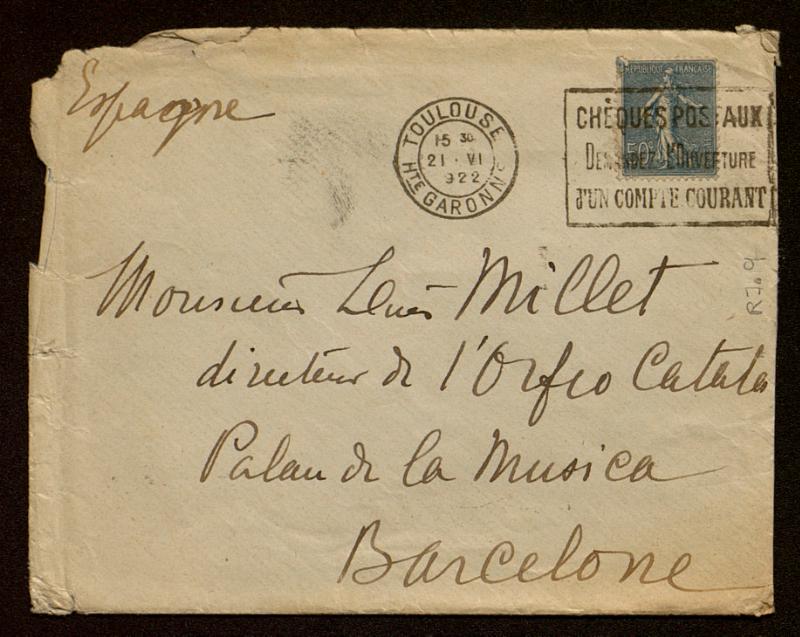 Espagne
TOULOUSE
15 30
21 · VI
922
HTE GARONNE
REPUBLIQUE FRANÇAISE
50c
CHÈQUES POSTAUX
DEMANDEZ L'OUVERTURE
d'UN COMPTE COURANT
R7.9
Monsieur Lluis Millet
directeur de l'Orfeo Catala
Palau de la Musica
Barcelone